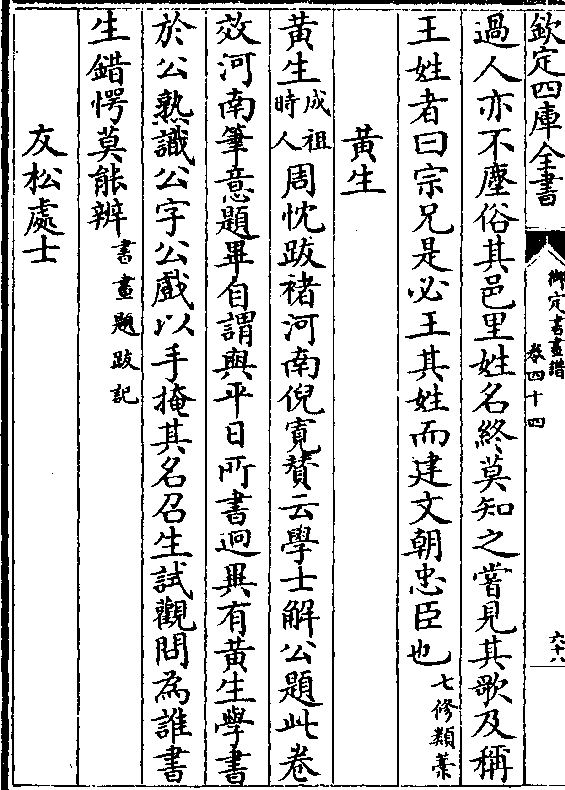 欽定四庫全書
御定書畫譜
卷四十四
六十八
過人亦不塵俗其邑里姓名終莫知之嘗見其歌及稱
王姓者曰宗兄是必王其姓而建文朝忠臣也七修類藁
黃生
黃生成祖時人周忱跋褚河南倪寬贊云學士解公題此卷
效河南筆意題畢自謂與平日所書迥異有黃生學書
於公熟識公字公戲以手掩其名召生試觀問為誰書
生錯愕莫能辨書畫題跋記
友松處士